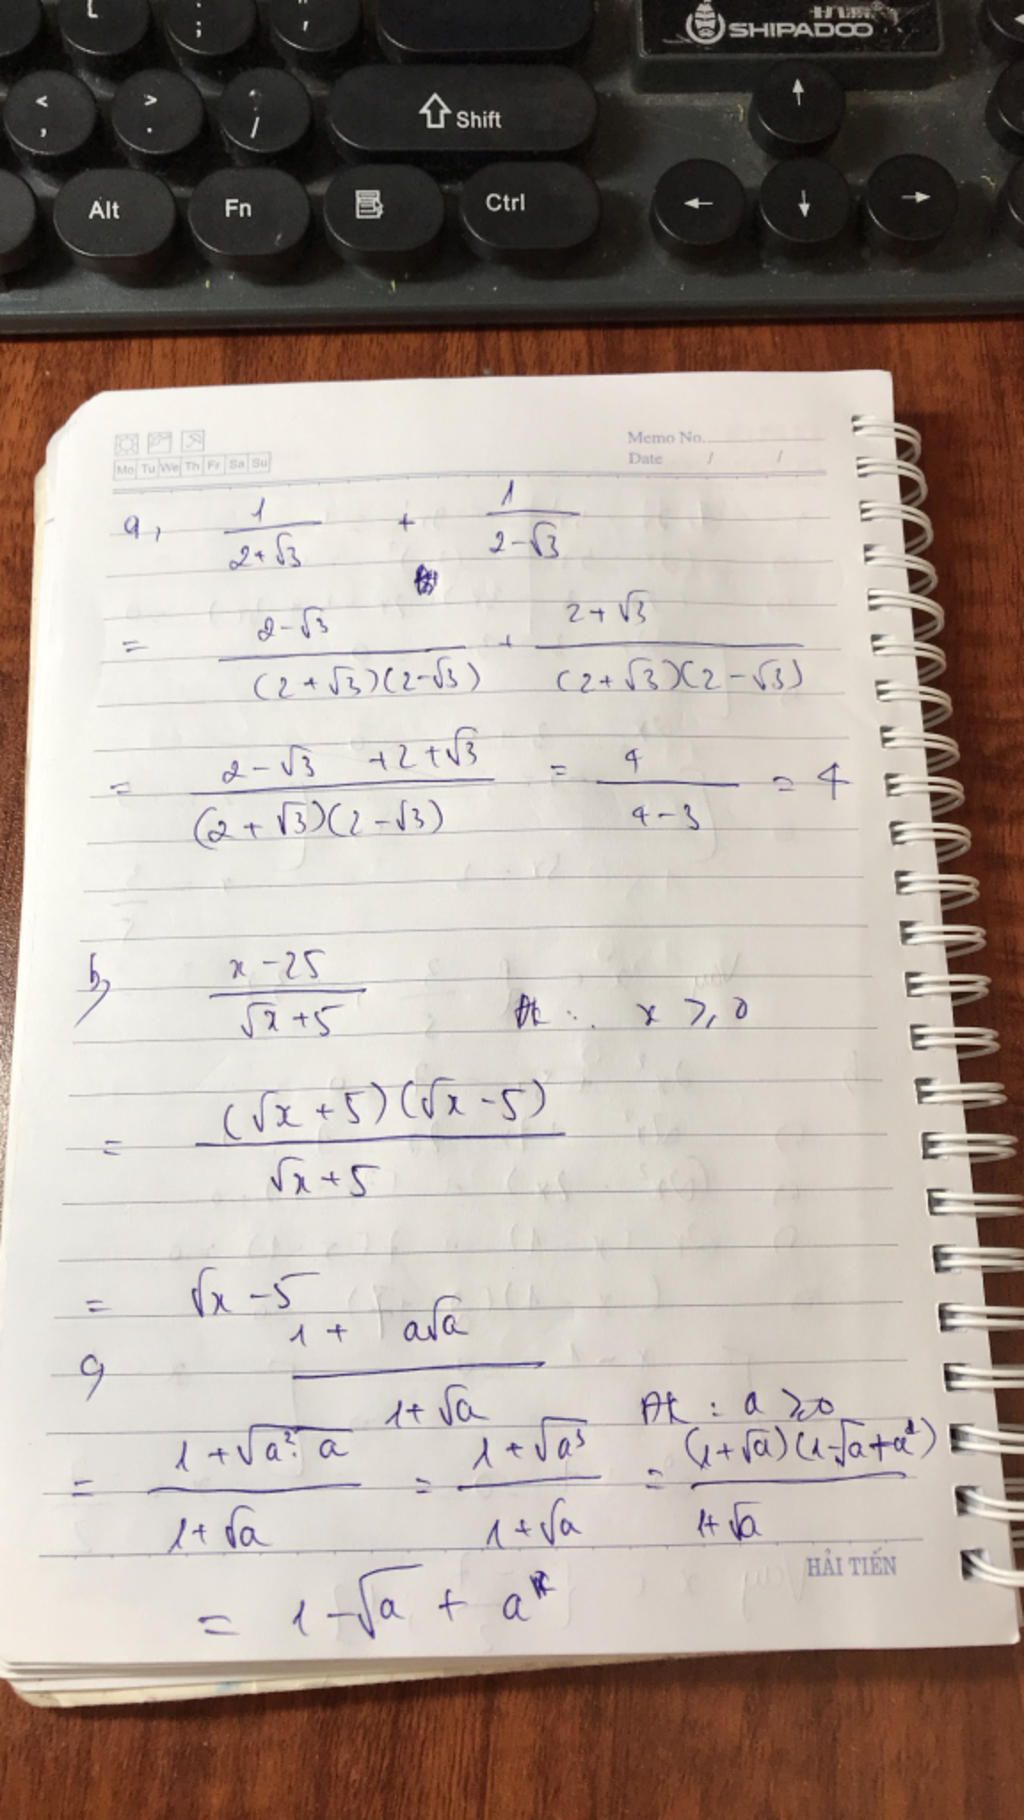 { [
: ;
" '
SHIPADOO
< ,
> .
? /
⇧ Shift
↑
Alt
Fn
Ctrl
← ↓ →
Memo No.
Mo Tu We Th Fr Sa Su
Date / /
a, 1/(2+√3) + 1/(2-√3)
= (2-√3)/((2+√3)(2-√3)) + (2+√3)/((2+√3)(2-√3))
= (2-√3 +2+√3)/((2+√3)(2-√3)) = 4/(4-3) = 4
b) (x-25)/(√x+5) Đk: x ⩾ 0
= ((√x+5)(√x-5))/(√x+5)
= √x -5
c) (1+ a√a)/(1+√a) Đk: a ⩾ 0
= (1+√(a².a))/(1+√a) = (1+√a³)/(1+√a) = ((1+√a)(1-√a+a))/(1+√a)
HẢI TIẾN
= 1-√a + a